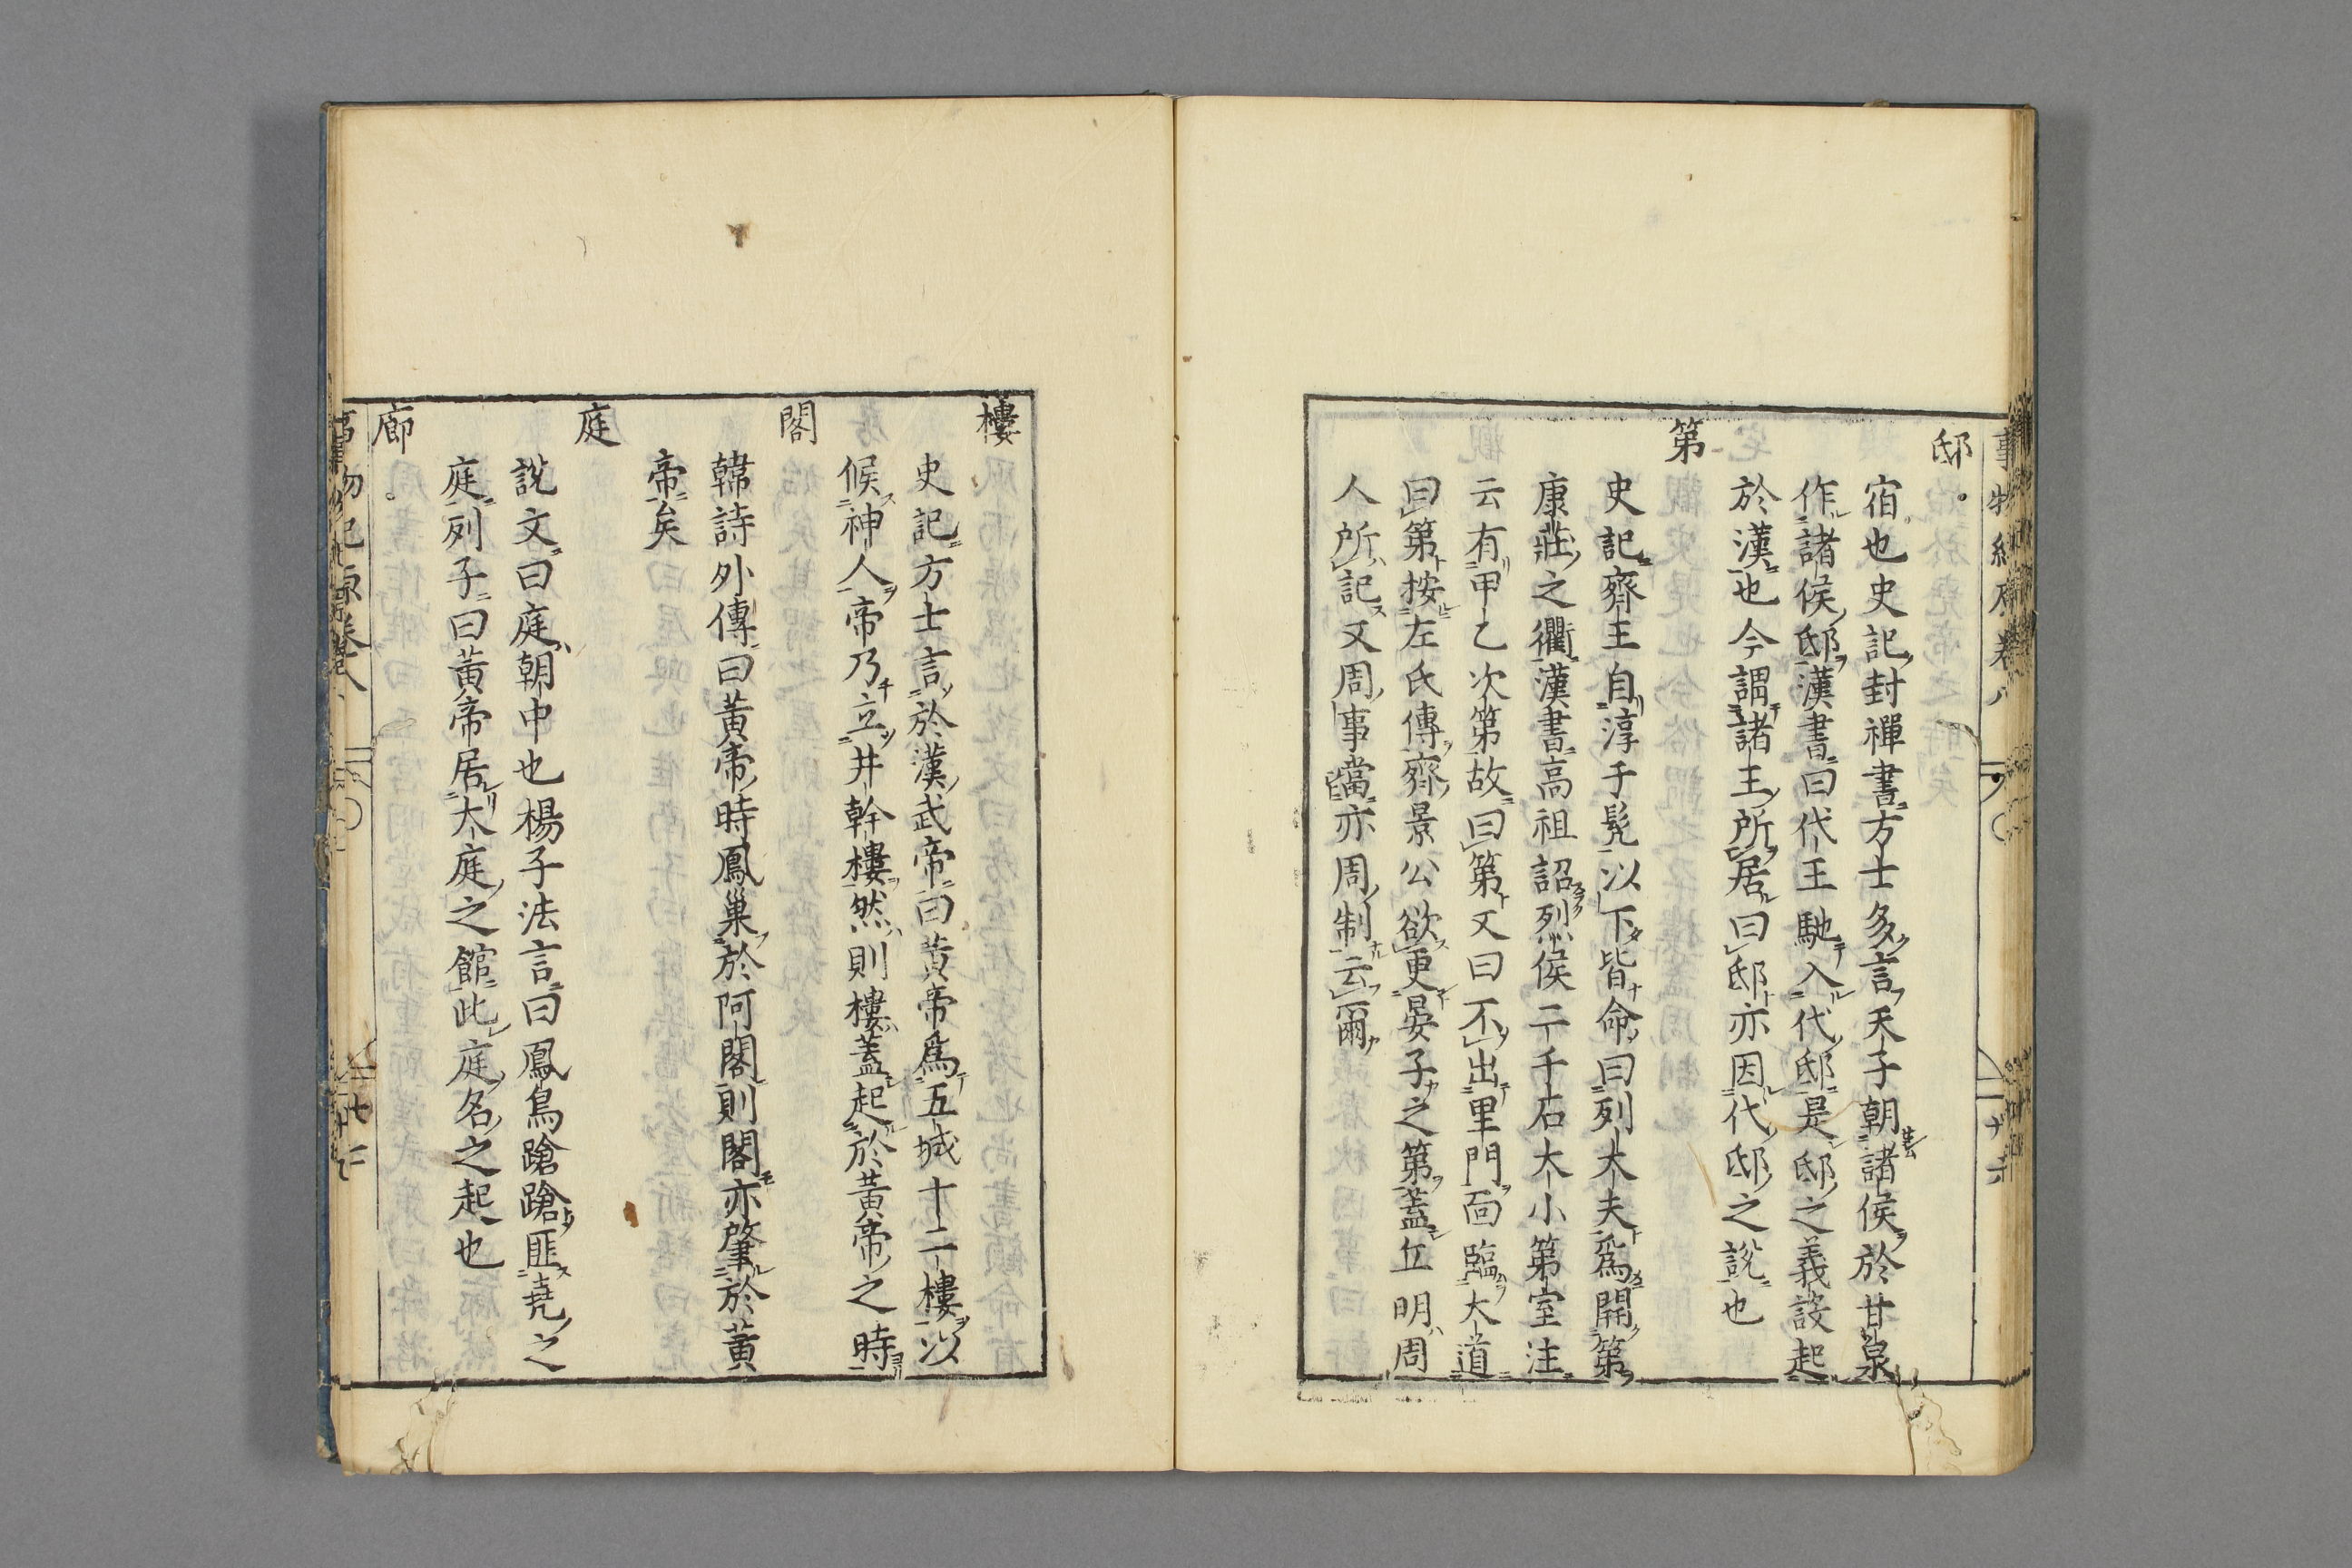 邸
宿也史記封禪書方士多言天子朝諸侯於甘泉
作諸候邸漢書曰代王馳入代邸是邸之義設起
於漢也今謂諸王所居曰邸亦因代邸之説也
第
史記齊王自淳于髡以下皆命曰列大夫爲開第
康莊之衢漢書高祖詔列侯二千石大小第室注
云有甲乙次第故曰第又曰不出里門面臨大道
曰第按左氏傳齊景公欲更晏子之第蓋丘明周
人所記又周事當亦周制云爾
樓
史記方士言於漢武帝曰黄帝爲五城十二樓以
候神人帝乃立井幹樓然則樓蓋起於黄帝之時
閣
韓詩外傳曰黄帝時鳳巢於阿閣則閣亦肇於黄
帝矣
庭
説文曰庭朝中也楊子法言曰鳳鳥蹌蹌匪堯之
庭列子曰黄帝居大庭之館此庭名之起也
廊